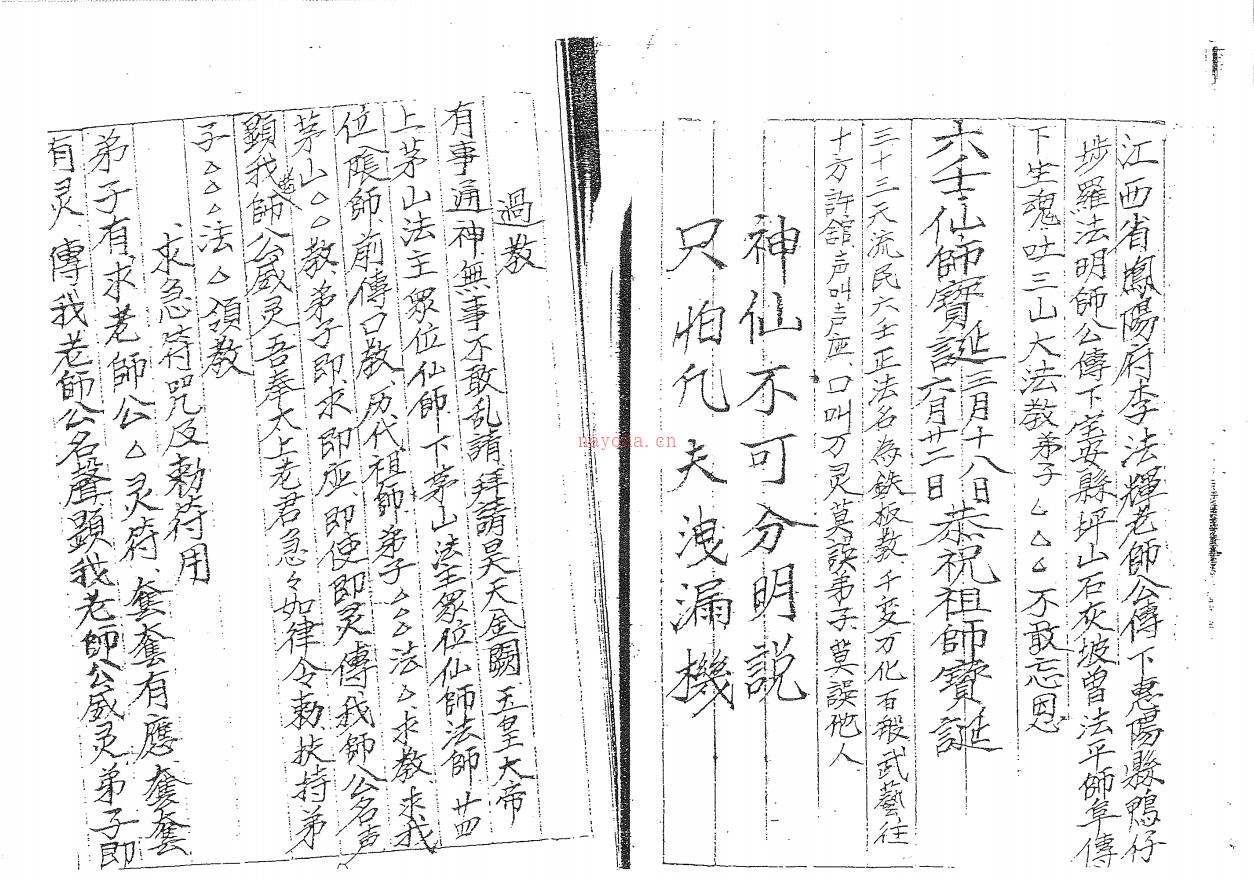 江西省鳳陽府李法輝老師公傳下惠陽縣鴨仔
埗羅法明師公傳下宝安縣坪山石灰坡曾法平師阜傳
下生魂吐三山大法教弟子△△△不敢忘恩
六壬仙師寶誕三月十八日六月廿二日恭祝祖師寶誕
三十三天流民六壬正法名為鉄板教千变万化百般武藝往
十方許舘声叫声应口叫万灵莫誤弟子莫誤他人
神仙不可分明説
只怕凡夫洩漏機
過教
有事通神無事不敢乱請拜請昊天金闕玉皇大帝
上茅山法主眾位仙師下茅山法主眾位仙師法師廿四
位陰師前傳口教历代祖師弟子△△法△求教求我
茅山△△教弟子即求即应即使即灵傳我師公名声
顕我師公威灵吾奉太上老君急々如律令勅扶持弟
子△△△法△領教
求急符咒及勅符用
弟子有求老師公△灵符奎奎有應奎奎
有灵傳我老師公名聲顕我老師公威灵弟子即
nayona.cn